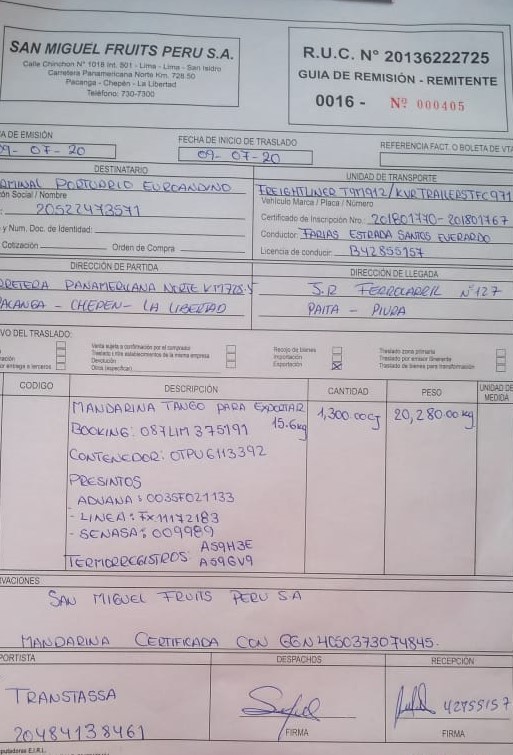 SAN MIGUEL FRUITS PERU S.A.
Calle Chinchon N° 1018 Int. 801 - Lima - Lima - San Isidro
Carretera Panamericana Norte Km. 728.50
Pacanga - Chepén - La Libertad
Teléfono: 730-7300
R.U.C. N° 20136222725
GUIA DE REMISIÓN - REMITENTE
0016 - Nº 000405
A DE EMISIÓN
09- 07- 20
FECHA DE INICIO DE TRASLADO
09- 07-20
REFERENCIA FACT. O BOLETA DE VTA
DESTINATARIO
RMINAL PORTUARIO EUROANDINO
ón Social / Nombre
20522473571
y Num. Doc. de Identidad:
Cotización Orden de Compra
UNIDAD DE TRANSPORTE
FREIGHTLINER / KVR TRAILERS TFC971
Vehículo Marca / Placa / Número
Certificado de Inscripción Nro.: 201801770- 201801767
Conductor: FARIAS ESTRADA SANTOS EVERARDO
Licencia de conducir: B42855157
DIRECCIÓN DE PARTIDA
RRETERA PANAMERICANA NORTE KM728.5
PACANGA - CHEPEN - LA LIBERTAD
DIRECCIÓN DE LLEGADA
J.R FERROCARRIL N°127
PAITA - PIURA
VO DEL TRASLADO:
Venta sujeta a confirmación por el comprador
Traslado entre establecimientos de la misma empresa
Devolución
Otros (especificar)
Recojo de bienes
Importación
Exportación
Traslado zona primaria
Traslado por emisor itinerante
Traslado de bienes para transformación
ación
or entrega a terceros
CODIGO DESCRIPCIÓN CANTIDAD PESO UNIDAD DE MEDIDA
MANDARINA TANGO PARA EXPORTAR 1,300.00CJ 20,280.00 kg
15.6kg
BOOKING: 087LIM375191
CONTENEDOR: OTPU6113392
PRESINTOS
ADUANA: 003SF021133
- LINEA: FX11172183
- SENASA: 009989
TERMORREGISTROS: AS9H3E
AS9GV9
VACIONES
SAN MIGUEL FRUITS PERU SA
MANDARINA CERTIFICADA CON GGN 4050373074845.
PORTISTA
TRANSTASSA
20484138461
DESPACHOS
FIRMA
RECEPCIÓN
42755157
FIRMA